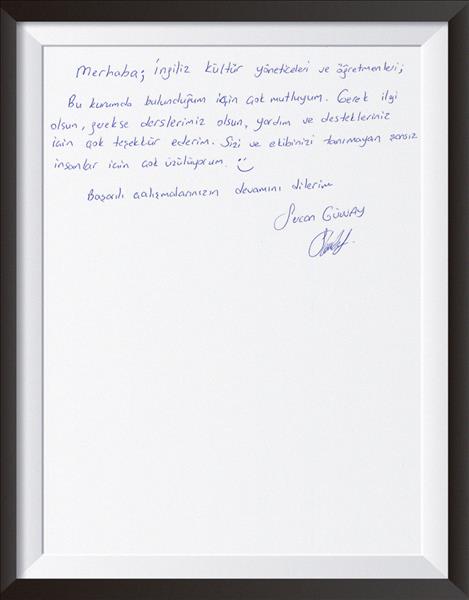 Merhaba; İngiliz Kültür yöneticileri ve öğretmenleri;
Bu kurumda bulunduğum için çok mutluyum. Gerek ilgi
olsun, gerekse derslerimiz olsun, yardım ve destekleriniz
için çok teşekkür ederim. Sizi ve ekibinizi tanımayan şansız
insanlar için çok üzülüyorum.
Başarılı çalışmalarınızın devamını dilerim
GÜNAY